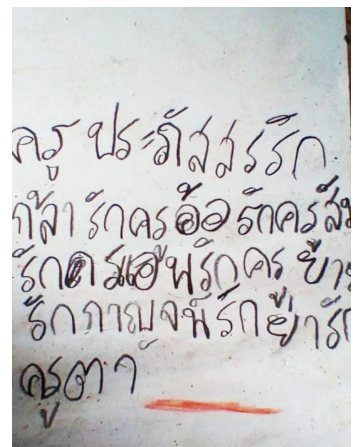 ครู ประภัสสรรัก
กล้ารักครูอ้อรักครูส้ม
รักครูพรักครูย่า
รักกาญจน์รักย่ารัก
ครูตา